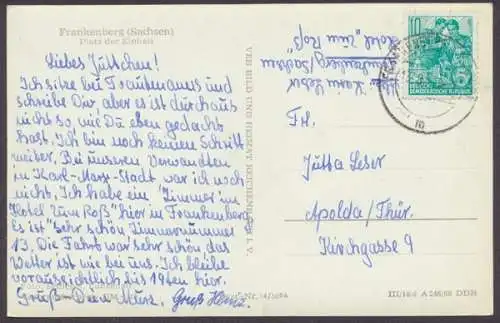 Frankenberg (Sachsen)
Platz der Einheit
Liebes Juttchen!
Ich sitze bei Trautmanns und
schreibe Dir aber es ist durchaus
nicht so wie Du eben gedacht
hast. Ich bin noch keinen Schritt
weiter. Bei unseren Verwandten
in Karl-Marx-Stadt war ich noch
nicht. Ich habe ein Zimmer im
Hotel "Zum Roß" hier in Frankenberg
Es ist sehr schön Zimmernummer
13. Die Fahrt war sehr schön, das
Wetter ist wie bei uns. Ich bleibe
voraussichtlich bis 19ten hier.
Gruß Dein Gruß Heinz.
VEB BILD UND HEIMAT REICHENBACH I. V.
Leser
Hotel "zum Roß"
Frankenberg/Sachsen
10
DEUTSCHE
DEMOKRATISCHE REPUBLIK
Frl.
Jutta Leser
Apolda/Thür.
Kirchgasse 9
DDR